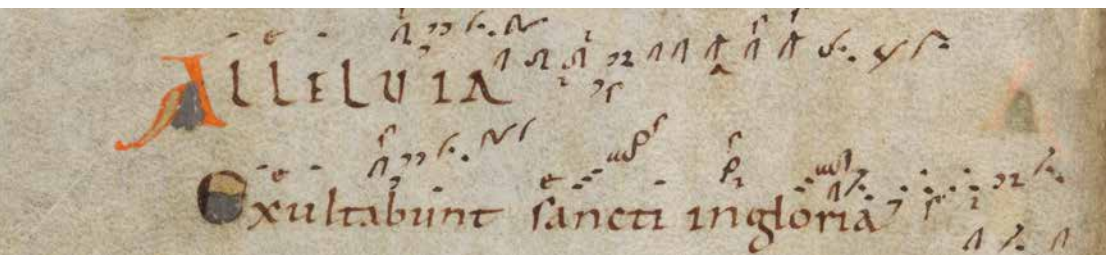 ALLELUIA
Exultabunt sancti in gloria